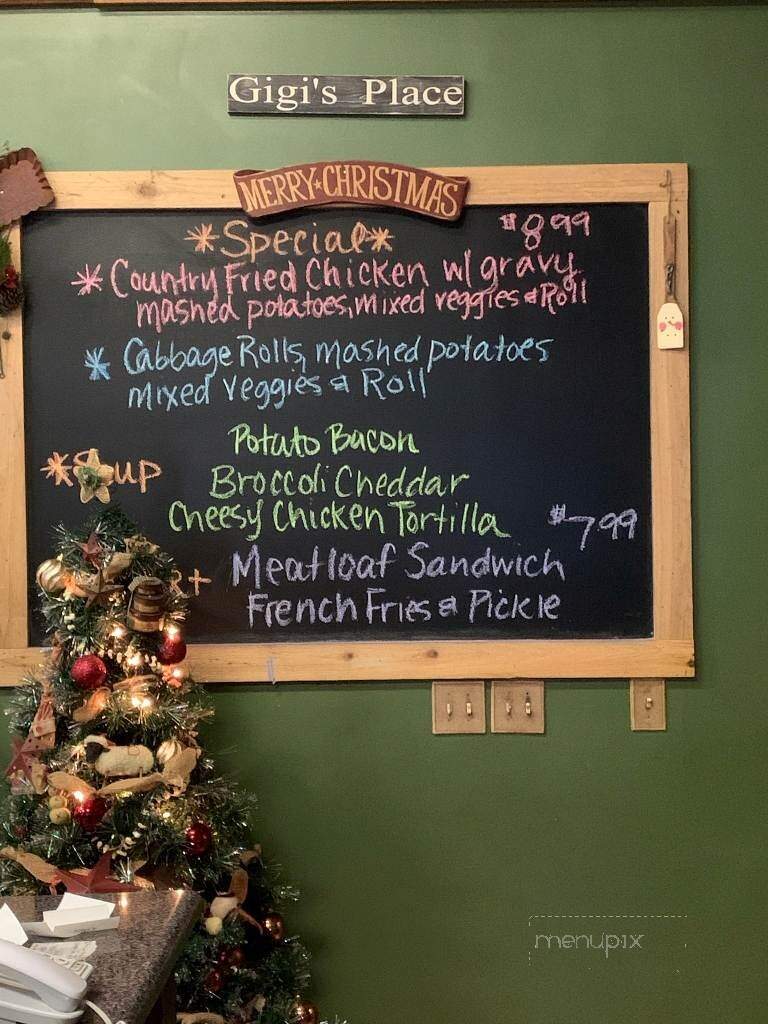 Gigi's Place
MERRY★CHRISTMAS
*Special* $8.99
* Country Fried Chicken w/ gravy
mashed potatoes, mixed veggies & Roll
* Cabbage Rolls, mashed potatoes
mixed veggies & Roll
Potato Bacon
*Soup
Broccoli Cheddar
Cheesy Chicken Tortilla
$7.99
Meatloaf Sandwich
French Fries & Pickle
menupix